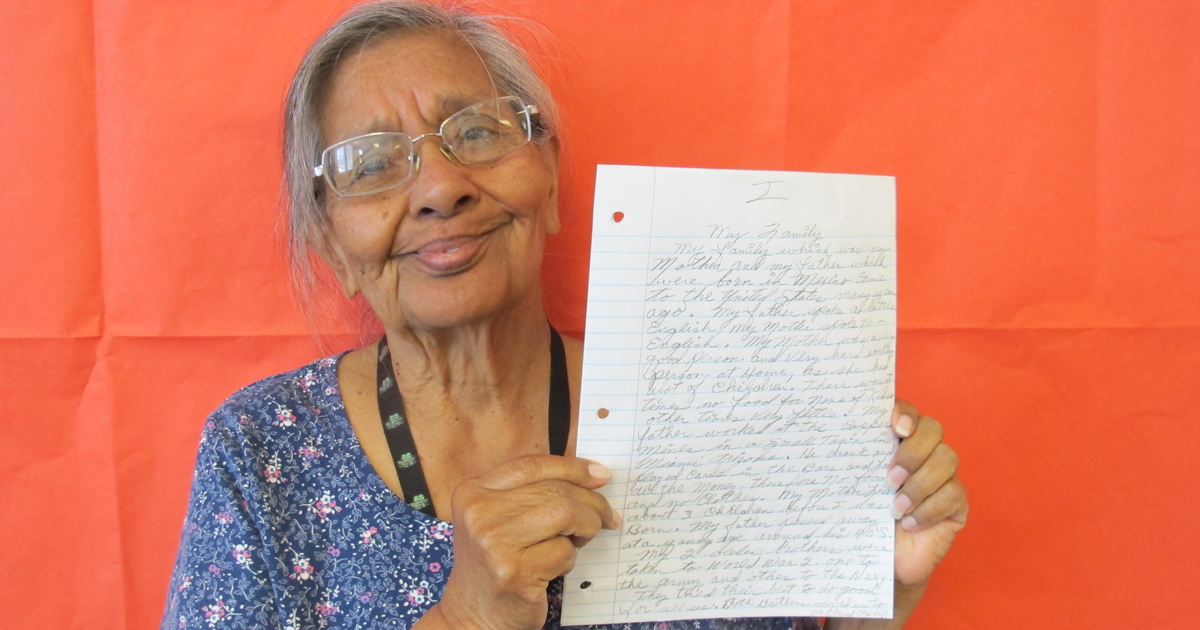 I
My Family
My Family which was my
Mother and my father which
were born in Mexico Came
to the United States many years
ago. My father spoke a little
English My Mother spoke no
English. My Mother was a very
good person and very hard working
person at Home, as she had
alot of Children. There were
times no food for None of
other times very little. My
father worked at the Copper
Mines in a Small Town in
Miami Arizona. He drank and
played Cards in the Bars and
all the Money, therefore No food
and no Clothes. My Mother
about 3 Children Before I was
Born. My father passed away
at a young age around his 40's.
My 2 older brothers were
taken to World War 2. one to
the army and other to the Navy.
They tried their best to do good
for all us. Both Brothers